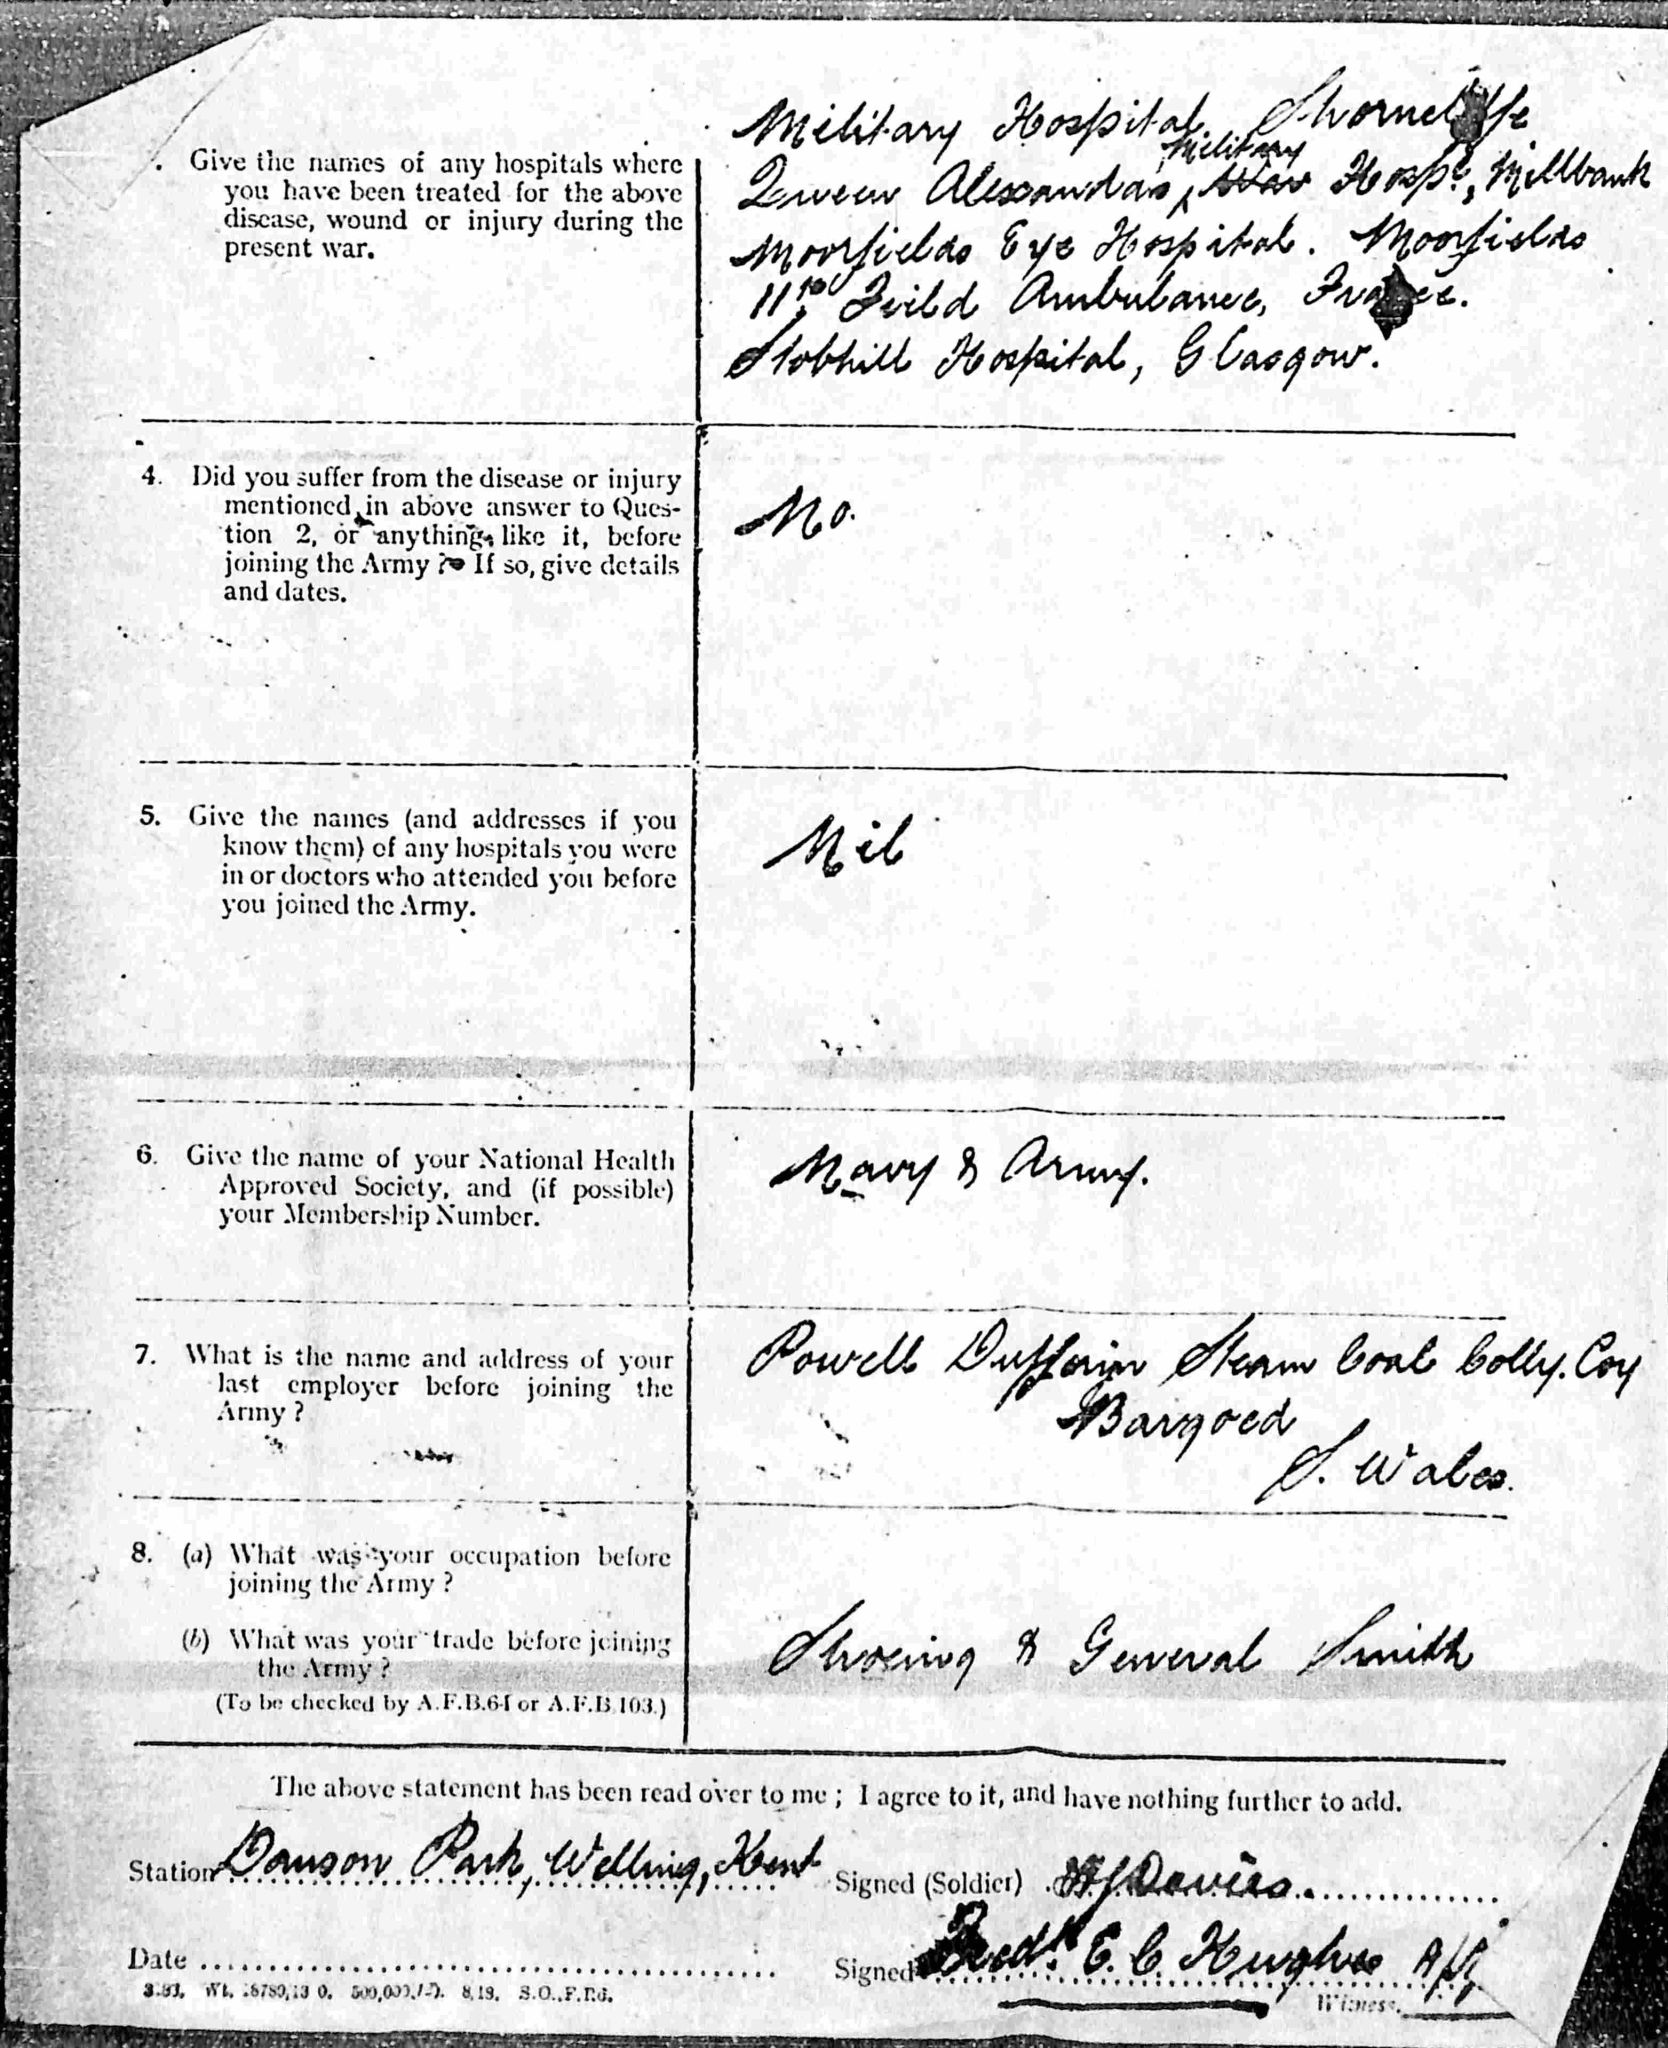 . Give the names of any hospitals where
you have been treated for the above
disease, wound or injury during the
present war.
Military Hospital Shorncliffe
Queen Alexandas Military War Hospl, Millbank
Moorfields Eye Hospital. Moorfields
11th Feild Ambulance, France.
Stobhill Hospital, Glasgow.
4. Did you suffer from the disease or injury
mentioned in above answer to Ques-
tion 2, or anything like it, before
joining the Army? If so, give details
and dates.
No.
5. Give the names (and addresses if you
know them) of any hospitals you were
in or doctors who attended you before
you joined the Army.
Nil
6. Give the name of your National Health
Approved Society, and (if possible)
your Membership Number.
Navy & Army.
7. What is the name and address of your
last employer before joining the
Army?
Powell Dufferin Steam Coal Colly. Coy
Bargoed
S. Wales.
8. (a) What was your occupation before
joining the Army?
(b) What was your trade before joining
the Army?
(To be checked by A.F.B.64 or A.F.B.103.)
Shoeing & General Smith
The above statement has been read over to me; I agree to it, and have nothing further to add.
Station Danson Park, Welling, Kent
Signed (Soldier) Davies.
Date
Signed E. C. Hughes
Witness.
500,000. 8,18. S.O.,F.Rd.